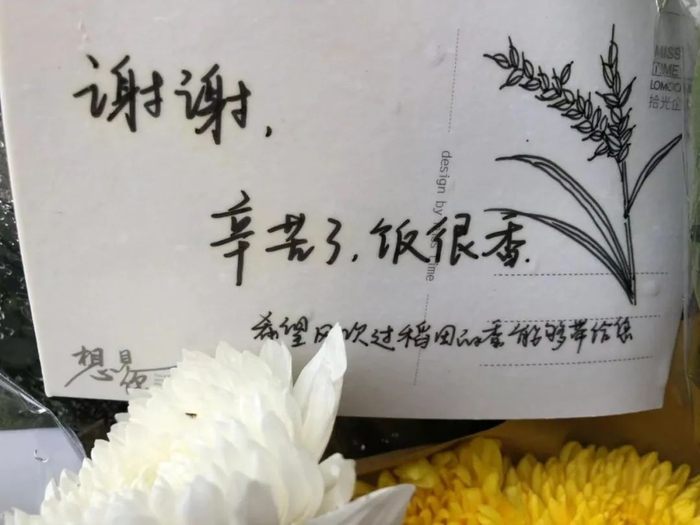 谢谢,
辛苦了,饭很香.
希望风吹过稻田的香能够带给您
design by
Time
MISS
TIME
LOMO
拾光
想见